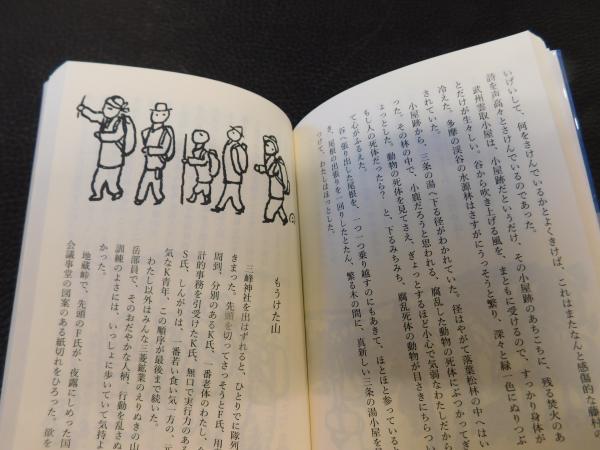 いげいして、何をさけんでいるかとよくきけば、これはまたなんと感傷的な藤村の
詩を声高々とさけんでいるのであった。
武州雲取小屋は、小屋跡だというだけ、その小屋跡のあちこちに、残る焚火のあ
とだけが生々しい。谷から吹き上げる風を、まともに受けるので、すっかり身体が
冷えた。多摩の渓谷の水源林はさすがにうっそうと繁り、深々と緑一色にぬりつぶ
されていた。
小屋跡から、三条の湯へ下る径がわかれていた。径はやがて落葉松林の中へはい
った。その林の中で、小鹿だろうと思われる、腐乱した動物の死体にぶつかってぎ
ょっとした。動物の死体を見てさえ、ぎょっとするほど小心で気弱なわたしだから
もし人の死体だったら？　と、下るみちみち、腐乱死体の動物が目さきにちらつい
て心がふるえた。
谷へ張り出した尾根を、一つ一つ乗り越すのにもあきて、ほとほと参っているとき
き、尾根の出張りを一回りしたとたん、繁る木の間に、真新しい三条の湯小屋を見
つけて、わたしはほっとした。
もうけた山
三峰神社を出はずれると、ひとりでに隊列
きまった。先頭を切ってさっそうとF氏、用
周到、分別のあるK氏、一番老体のわたし、会
計的事務を引受けたK氏、無口で実行力のある
S氏、しんがりは、一番若い食い気一方の、元
気なK青年、この順序が最後まで続いた。
わたし以外はみんな三菱鉱業のえりぬきの山
岳部員で、そのおだやかな人柄、行動を乱さぬ
訓練のよさには、いっしょに歩いていて気持よ
かった。
地蔵峠で、先頭のF氏が、夜露にしめった国
会議事堂の図案のある紙切れをひろった。欲を